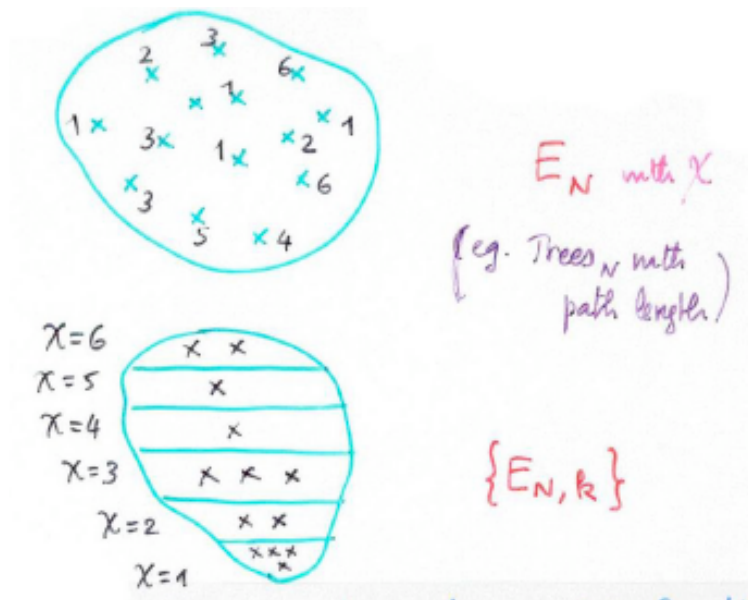 3
2
6
1
1
1
3
1
2
6
3
5
4
E_N with χ
(eg. Trees_N with
path length)
χ=6
χ=5
χ=4
χ=3
χ=2
χ=1
{E_N,k}